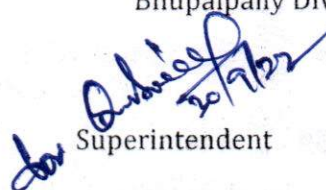 Bhupalpally Div
for
20/9/22
Superintendent